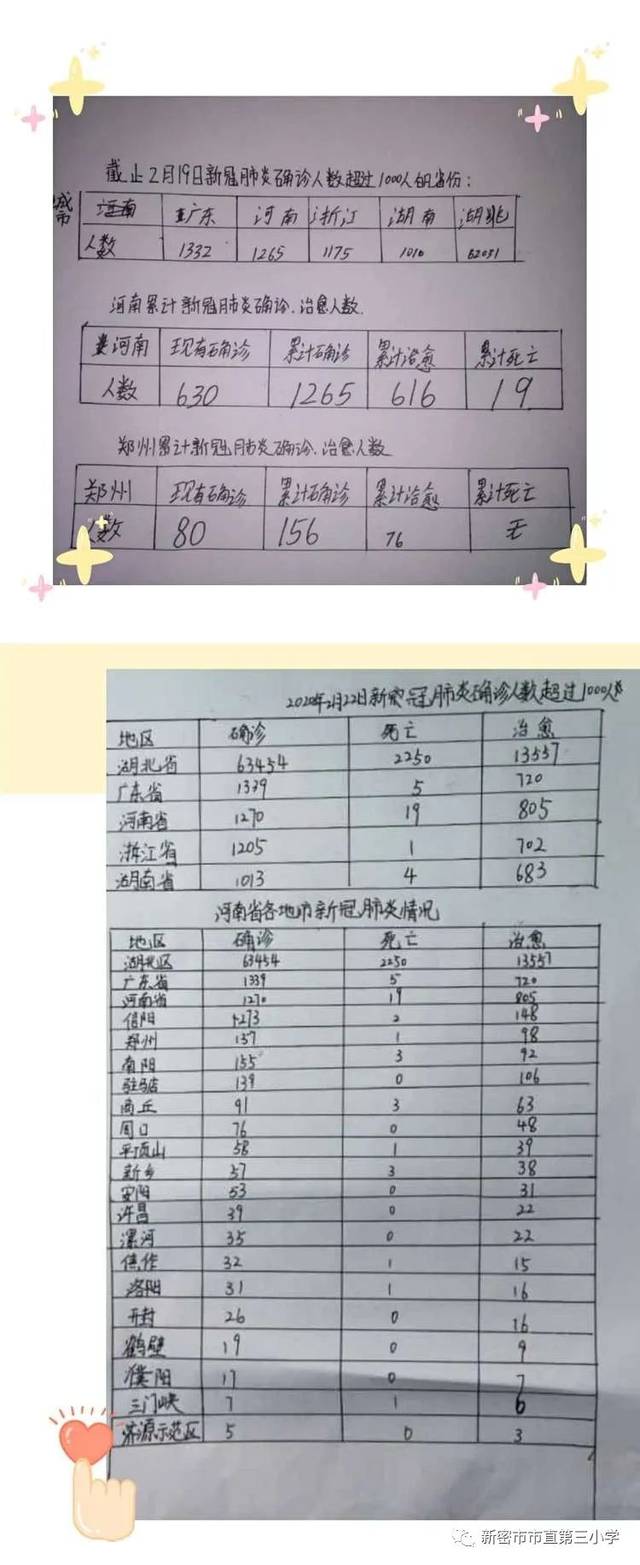 截止2月19日新冠肺炎确诊人数超过1000人的省份:
城市 广东 河南 浙江 湖南 湖北
人数 1332 1265 1175 1010 62031
河南累计新冠肺炎确诊、治愈人数.
河南 现有确诊 累计确诊 累计治愈 累计死亡
人数 630 1265 616 19
郑州累计新冠肺炎确诊、治愈人数
郑州 现有确诊 累计确诊 累计治愈 累计死亡
人数 80 156 76 无
2020年2月22日新冠肺炎确诊人数超过1000人
地区 确诊 死亡 治愈
湖北省 63454 2250 13557
广东省 1339 5 720
河南省 1270 19 805
浙江省 1205 1 702
湖南省 1013 4 683
河南省各地市新冠肺炎情况
地区 确诊 死亡 治愈
湖北区 63454 2250 13557
广东省 1339 5 720
河南省 1270 19 805
信阳 273 2 148
郑州 157 1 98
南阳 155 3 92
驻马店 139 0 106
商丘 91 3 63
周口 76 0 48
平顶山 58 1 39
新乡 57 3 38
安阳 53 0 31
许昌 39 0 22
漯河 35 0 22
焦作 32 1 15
洛阳 31 1 16
开封 26 0 16
鹤壁 19 0 9
濮阳 17 0 7
三门峡 7 1 6
济源示范区 5 0 3
新密市市直第三小学